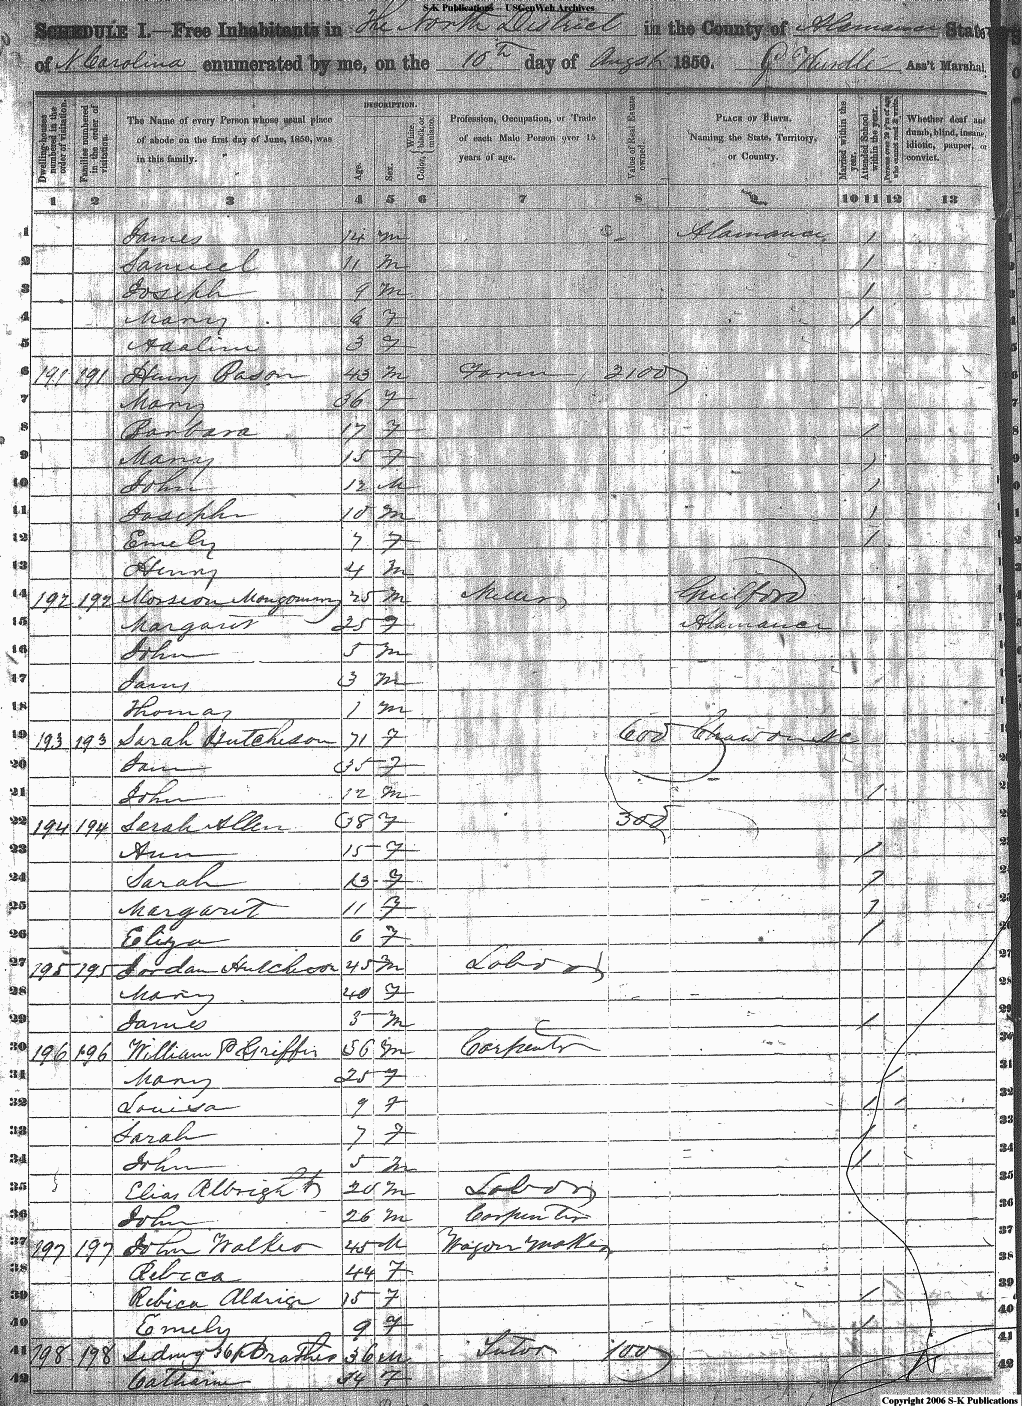 S-K Publications -- USGenWeb Archives
SCHEDULE I.—Free Inhabitants in The North District in the County of Alamance State
of N Carolina enumerated by me, on the 10th day of Augst 1850. G Hurdle Ass't Marshal.
Dwelling-houses numbered in the order of visitation.
Families numbered in the order of visitation.
The Name of every Person whose usual place of abode on the first day of June, 1850, was in this family.
DESCRIPTION.
Age.
Sex.
Color, White, black, or mulatto.
Profession, Occupation, or Trade of each Male Person over 15 years of age.
Value of Real Estate owned.
PLACE OF BIRTH. Naming the State, Territory, or Country.
Married within the year.
Attended School within the year.
Whether deaf and dumb, blind, insane, idiotic, pauper, or convict.
1 2 3 4 5 6 7 8 9 10 11 12 13
1 James 14 M Alamance 1
2 Samuel 11 M 1
3 Joseph 9 M 1
4 Mary 6 F 1
5 Adaline 3 F
6 191 191 Henry Bason 43 M Farmer 2100
7 Mary 36 F
8 Barbara 17 F 1
9 Mary 15 F 1
10 John 12 M 1
11 Joseph 10 M 1
12 Emely 7 F 1
13 Henry 4 M
14 192 192 Montgomery 25 M Miller Guilford
15 Margaret 25 F Alamance
16 John 5 M
17 James 3 M
18 Thomas 1 M
19 193 193 Sarah Hutcheson 71 F 600
20 Jane 35 F
21 John 12 M 1
22 194 194 Sarah Allen 38 F 300
23 Ann 15 F 1
24 Sarah 13 F 1
25 Margaret 11 F 1
26 Eliza 6 F 1
27 195 195 Jordan Hutcheson 45 M Labor
28 Mary 40 F
29 James 5 M 1
30 196 196 William B Griffis 56 M Carpenter
31 Mary 25 F 1
32 Louisa 9 F 1 1
33 Sarah 7 F 1
34 John 5 M 1
35 Elias Albright 20 M Labor
36 John 26 M Carpenter
37 197 197 John Walker 45 M Wagon maker
38 Rebica 44 F
39 Rebica Aldrige 15 F 1
40 Emely 9 F 1
41 198 198 Sidney 36 M Tutor 100
42 Catharine 34 F
Copyright 2006 S-K Publications